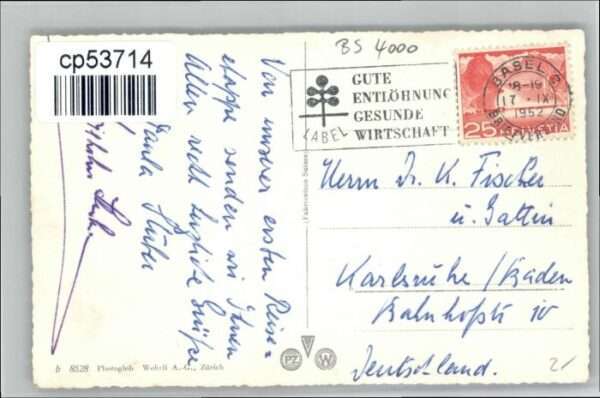 cp53714
BS 4000
GUTE
ENTLÖHNUNG
GESUNDE
WIRTSCHAFT
LABEL
BASEL 2
18-19
17. IX
1952
BRIEFVERSAND
25 HELVETIA
Von unserer ersten Reise=
etappe senden wir Ihnen
Allen recht herzliche Grüße
Paula Huber
Herrn Dr. K. Fischer
u. Gattin
Karlsruhe / Baden
Bahnhofstr 10
Deutschland.
b 8528 Photoglob - Wehrli A.-G., Zürich
PZ
W